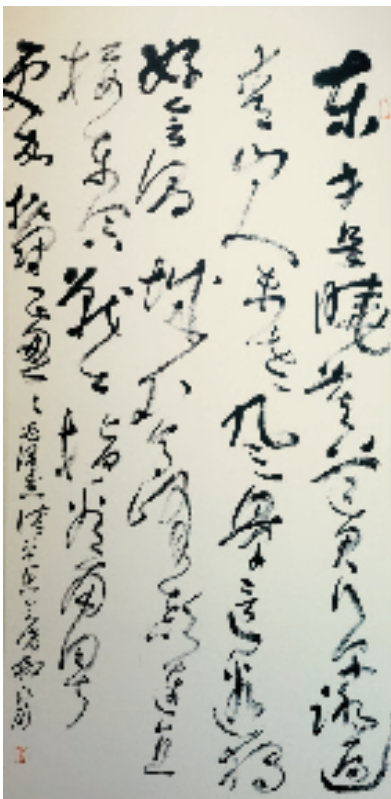 东方欲晓莫道君行早踏遍
青山人未老风景这边独
好会昌城外高峰颠连直
接东溟战士指看南粤
更加郁郁葱葱